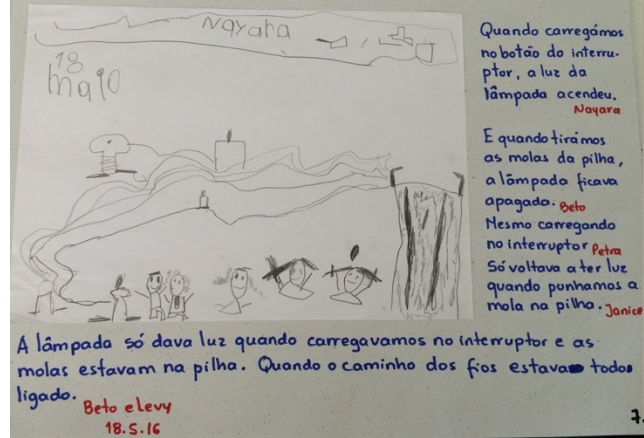 Nayara
18
maio
Quando carregámos
no botão do interru-
ptor, a luz da
lâmpada acendeu.
Nayara
E quando tirámos
as molas da pilha,
a lâmpada ficava
apagada. Beto
Mesmo carregando
no interruptor Petra
Só voltava a ter luz
quando punhamos a
mola na pilha. Janice
A lâmpada só dava luz quando carregavamos no interruptor e as
molas estavam na pilha. Quando o caminho dos fios estava todo
ligado.
Beto e Levy
18.5.16
7.